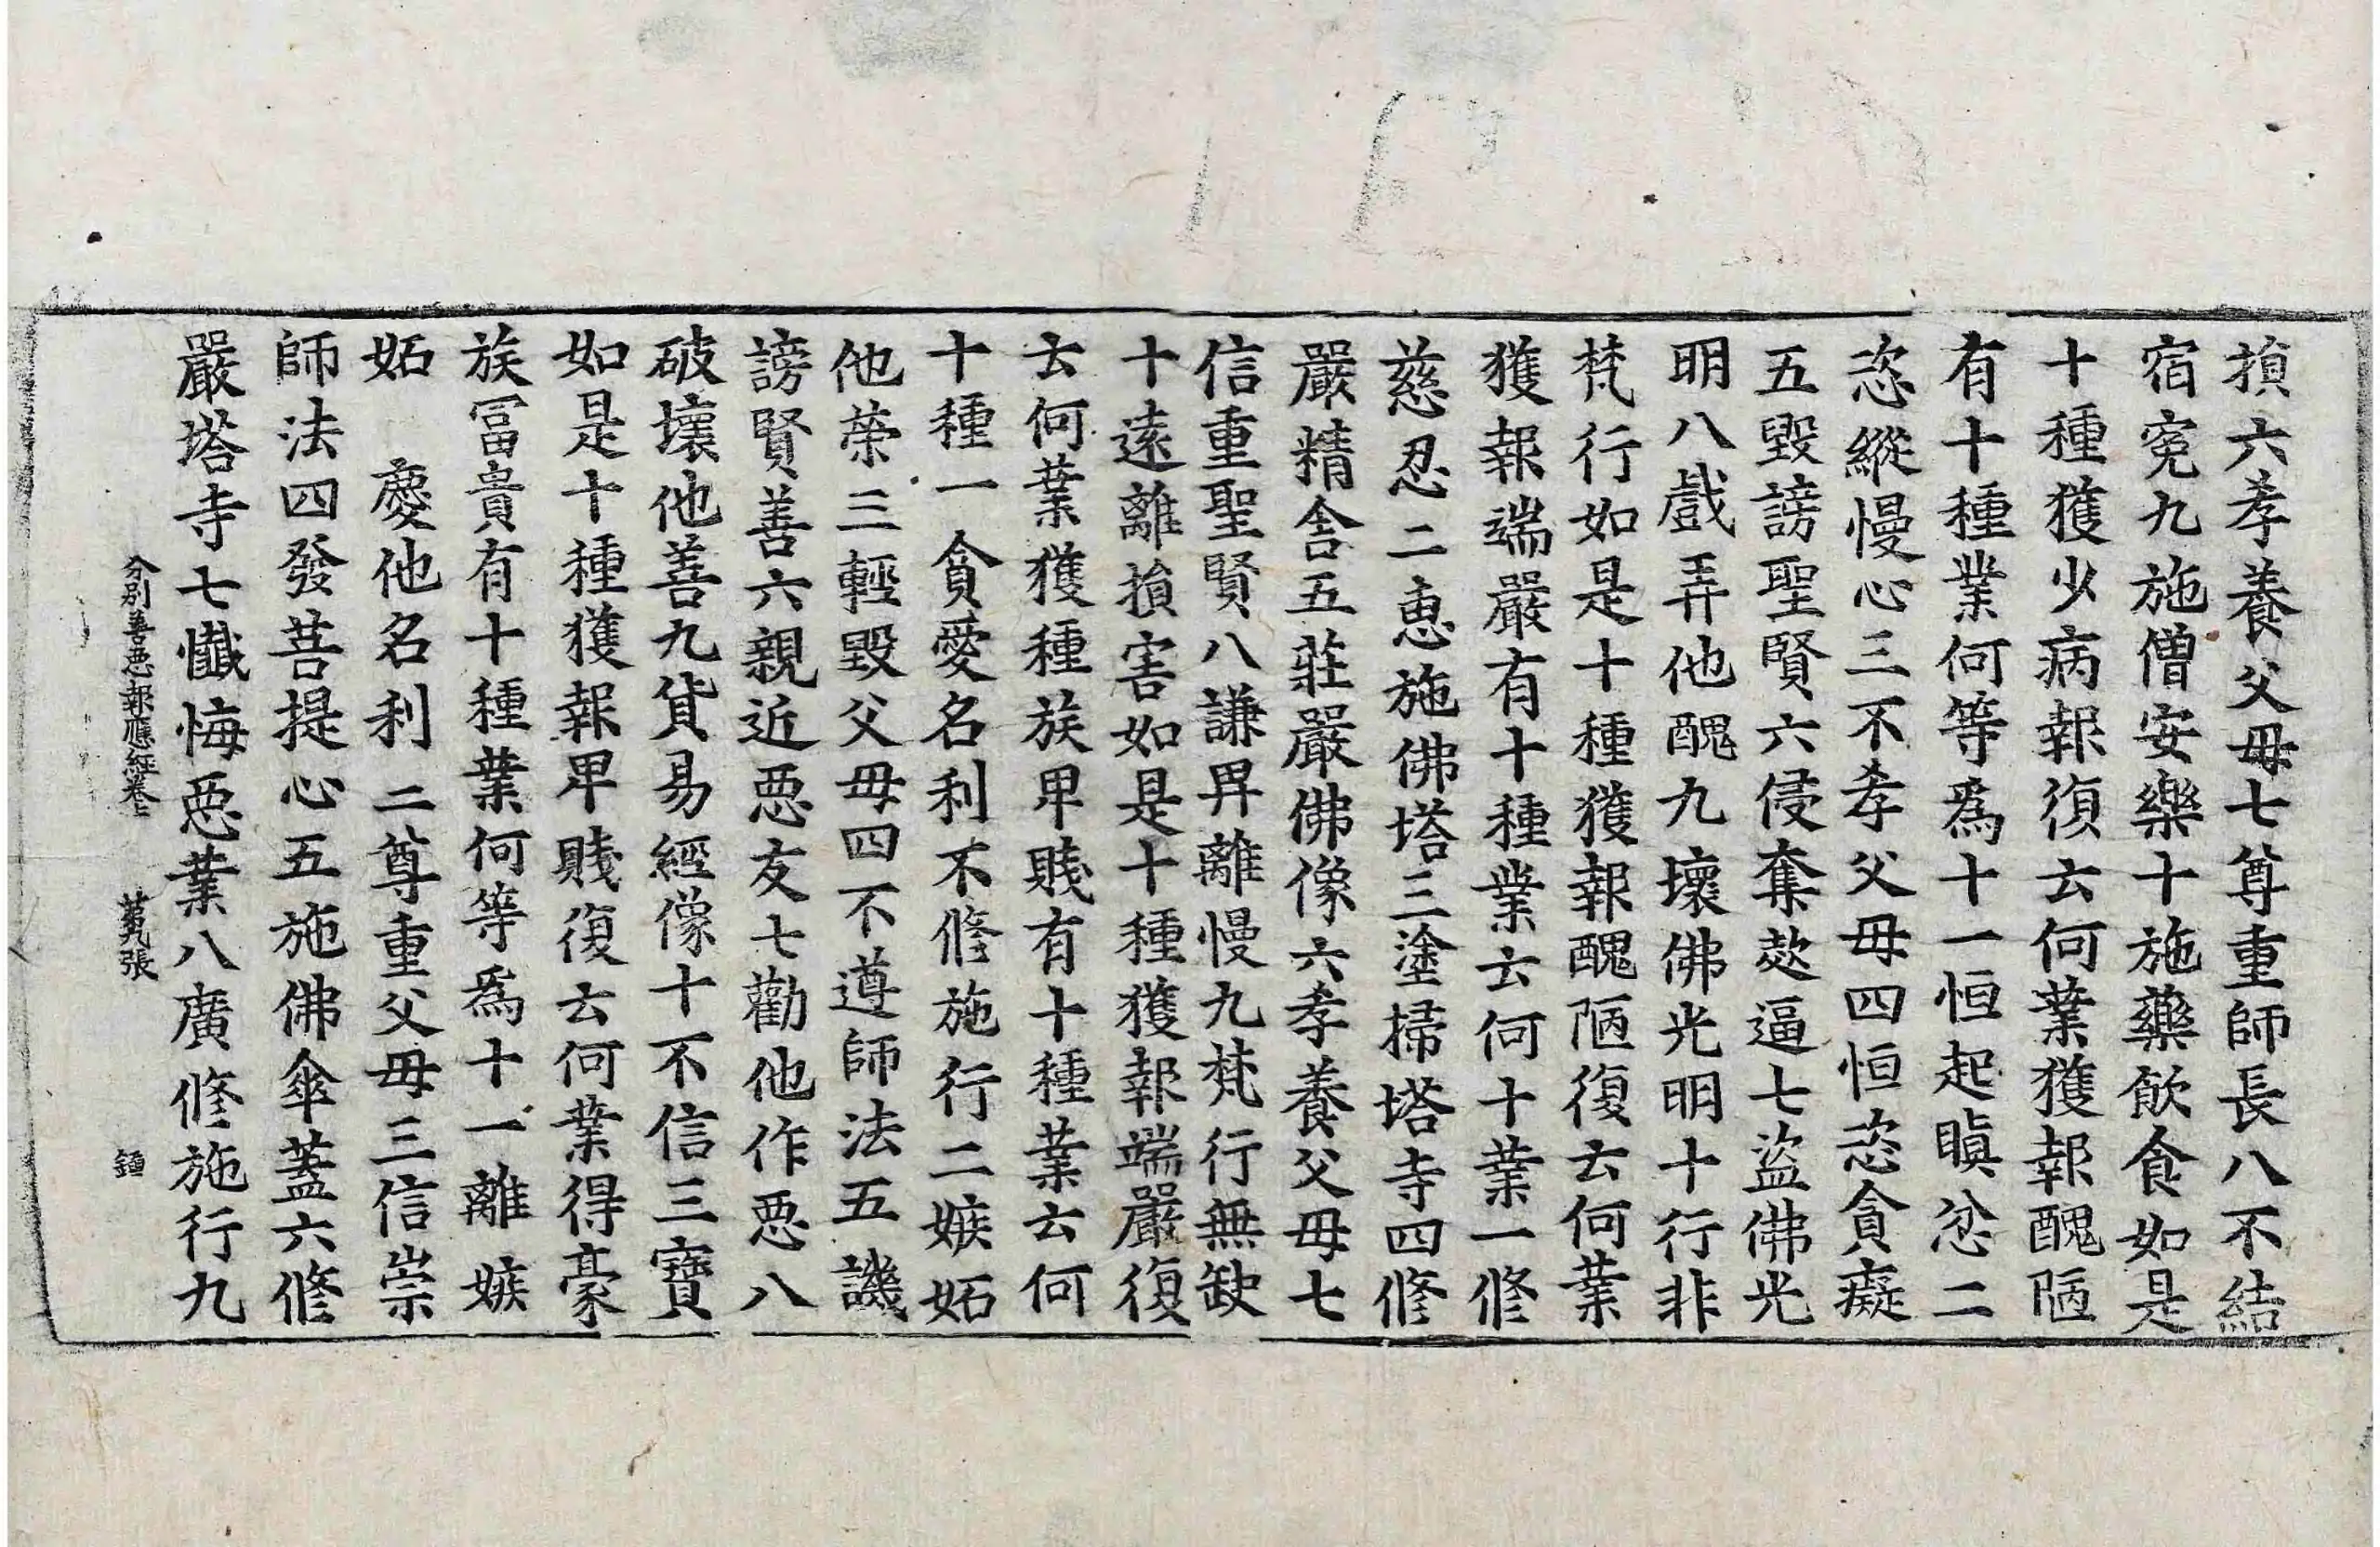 損六孝養父母七尊重師長八不結
宿寃九施僧安樂十施藥飲食如是
十種獲少病報復云何業獲報醜陋
有十種業何等爲十一恒起瞋忿二
恣縱慢心三不孝父母四恒恣貪癡
五毀謗聖賢六侵奪逼七盜佛光
明八戲弄他醜九壞佛光明十行非
梵行如是十種獲報醜陋復云何業
獲報端嚴有十種業云何十業一修
慈忍二惠施佛塔三塗掃塔寺四修
嚴精舍五莊嚴佛像六孝養父母七
信重聖賢八謙畀離慢九梵行無缺
十遠離損害如是十種獲報端嚴復
云何業獲種族卑賤有十種業云何
十種一貪愛名利不修施行二嫉妬
他荣三輕毀父母四不遵師法五譏
謗賢善六親近惡友七勸他作惡八
破壞他善九貨易經像十不信三寶
如是十種獲報卑賤復云何業得豪
族冨貴有十種業何等爲十一離嫉
妬 慶他名利二尊重父母三信崇
師法四發菩提心五施佛傘蓋六修
嚴塔寺七懺悔惡業八廣修施行九
分別善惡報應經卷上 張 鍾